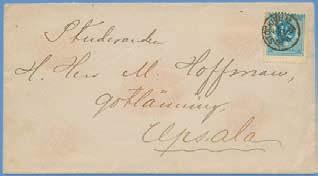 Studeranden
H. Herr M. Hoffman,
gotlänning,
Upsala